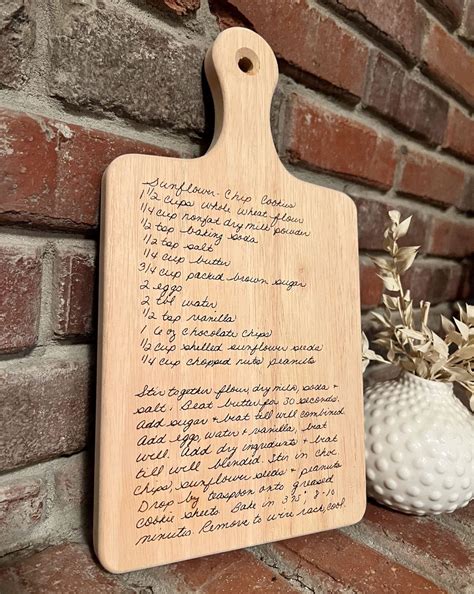 Sunflower-Chip Cookies
1 1/2 cups whole wheat flour
1/4 cup nonfat dry milk powder
1/2 tsp baking soda
1/2 tsp salt
1/4 cup butter
3/4 cup packed brown sugar
2 eggs
2 tbl water
1/2 tsp vanilla
1 6 oz chocolate chips
1/2 cup shelled sunflower seeds
1/4 cup chopped nuts peanuts
Stir together flour, dry milk, soda +
salt. Beat butter for 30 seconds.
Add sugar + beat till well combined
Add eggs, water + vanilla, beat
well. Add dry ingredients + beat
till well blended. Stir in choc
chips, sunflower seeds + peanuts
Drop by teaspoon onto greased
cookie sheets. Bake in 375°, 8-10
minutes. Remove to wire rack, cool.